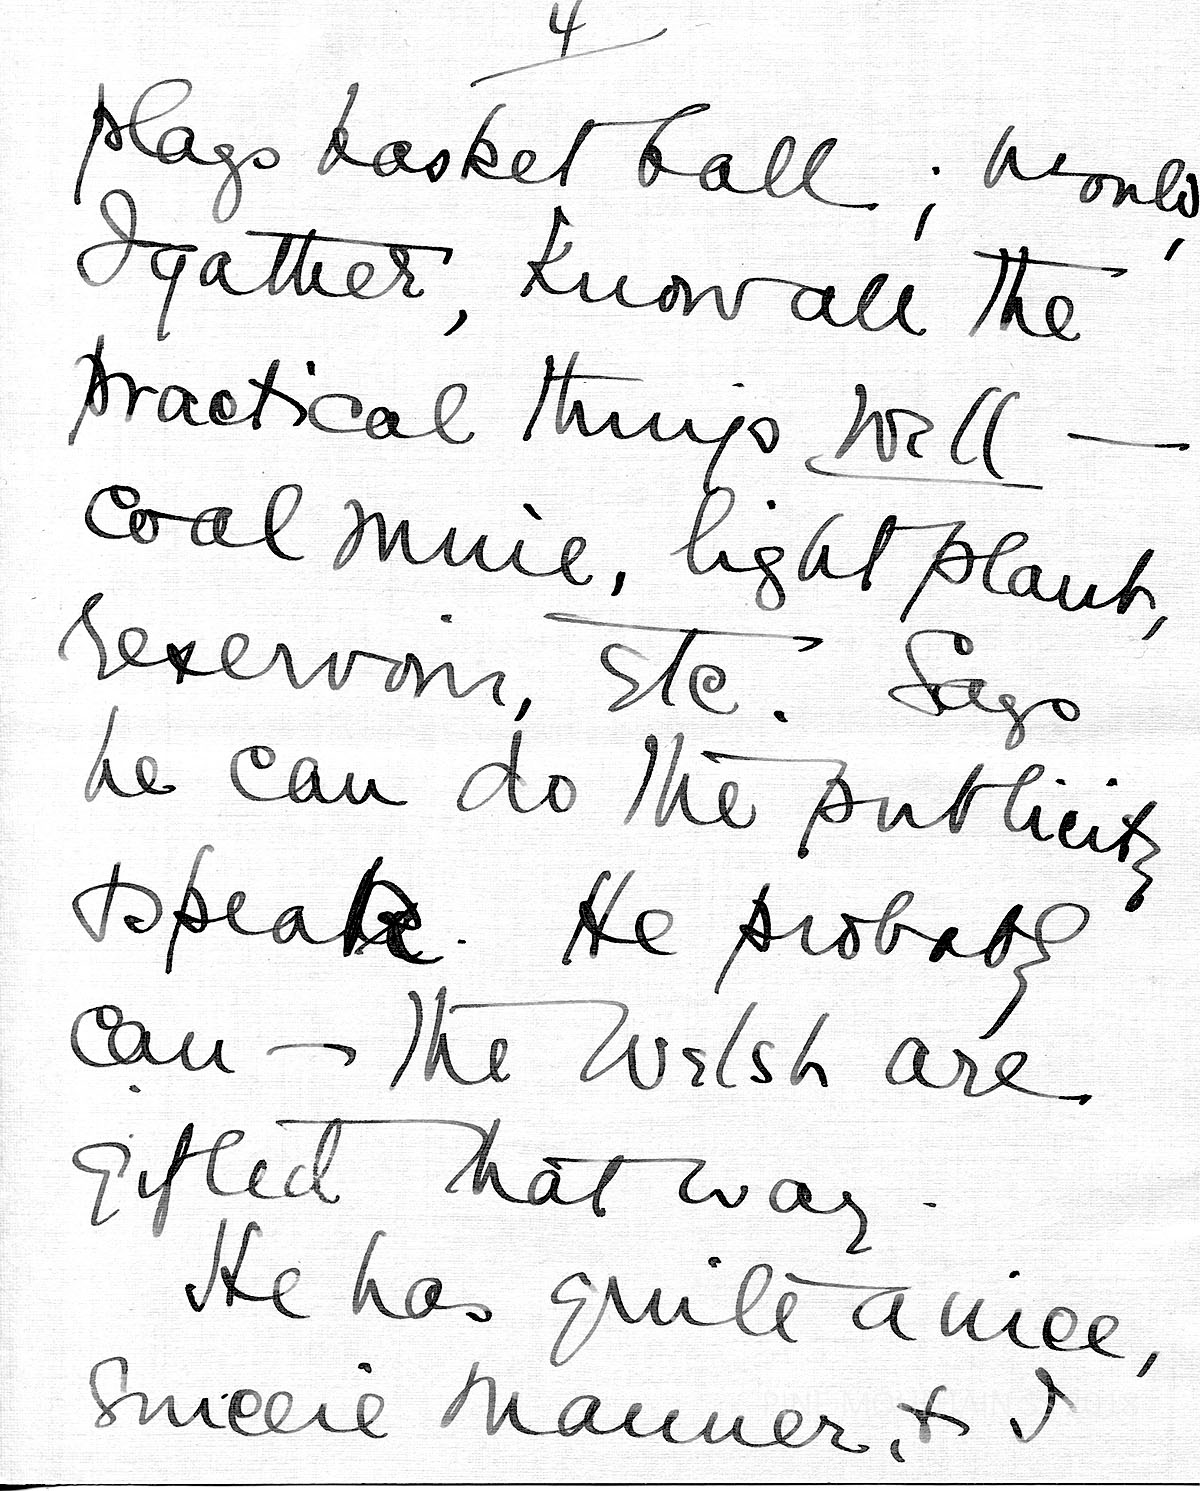 4
plays basket ball; would,
I gather, know all the
practical things well —
coal mine, light plant,
reservoir, etc. Says
he can do the publicity
& speak. He probably
can — the Welsh are
gifted that way.
He has quite a nice,
sincere manner, & I